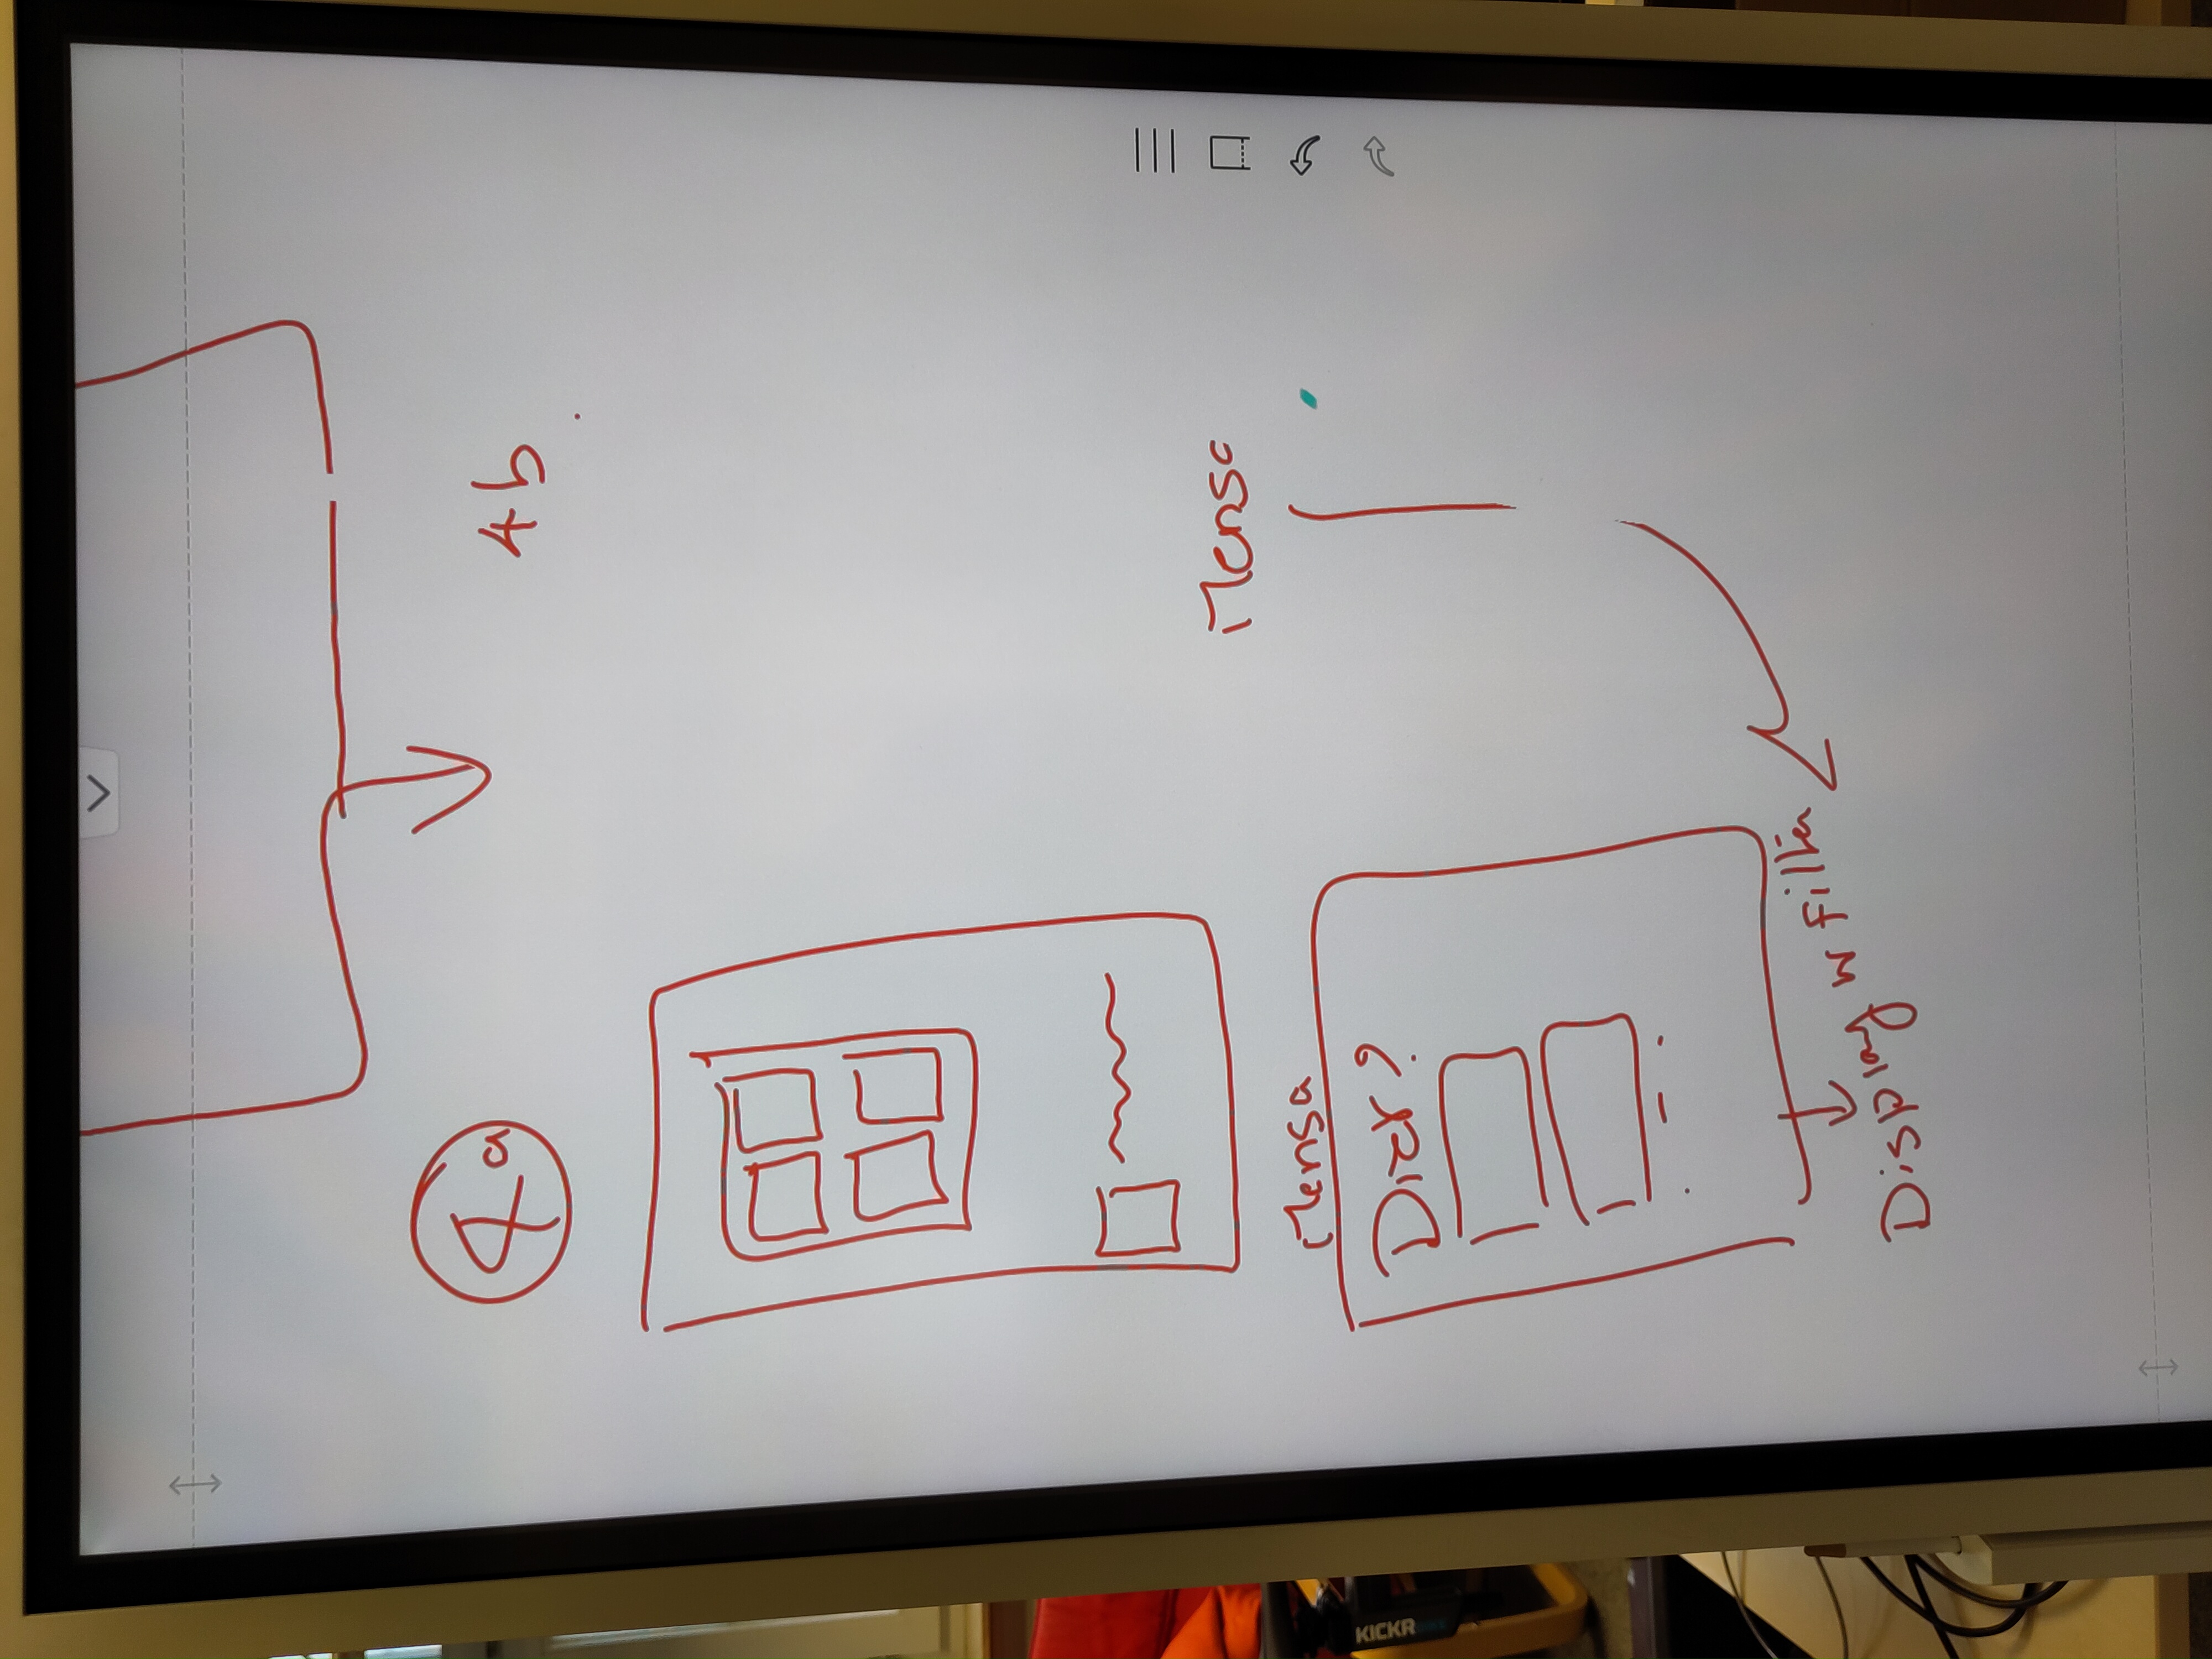 4a
4b
Mensa
Mensa
Diet?
Display w filter
KICKR